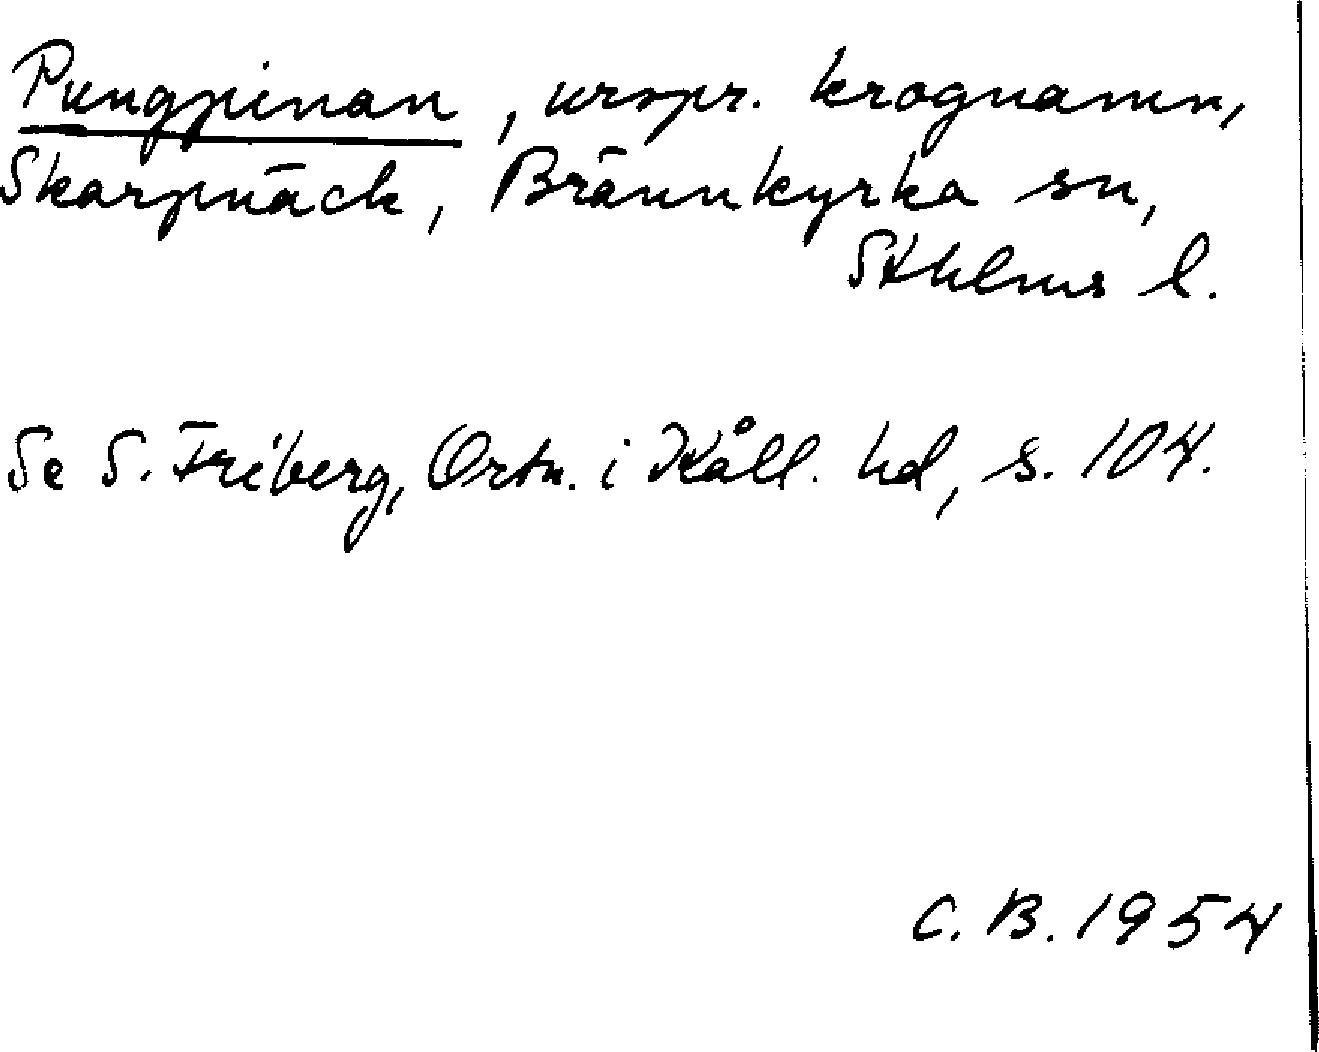 Pungpinan, urspr. krognamn,
Skarpnäck, Brännkyrka sn,
Sthlms l.
Se S. Friberg, Ortn. i Håll. hd, s. 104.
C. B. 1954